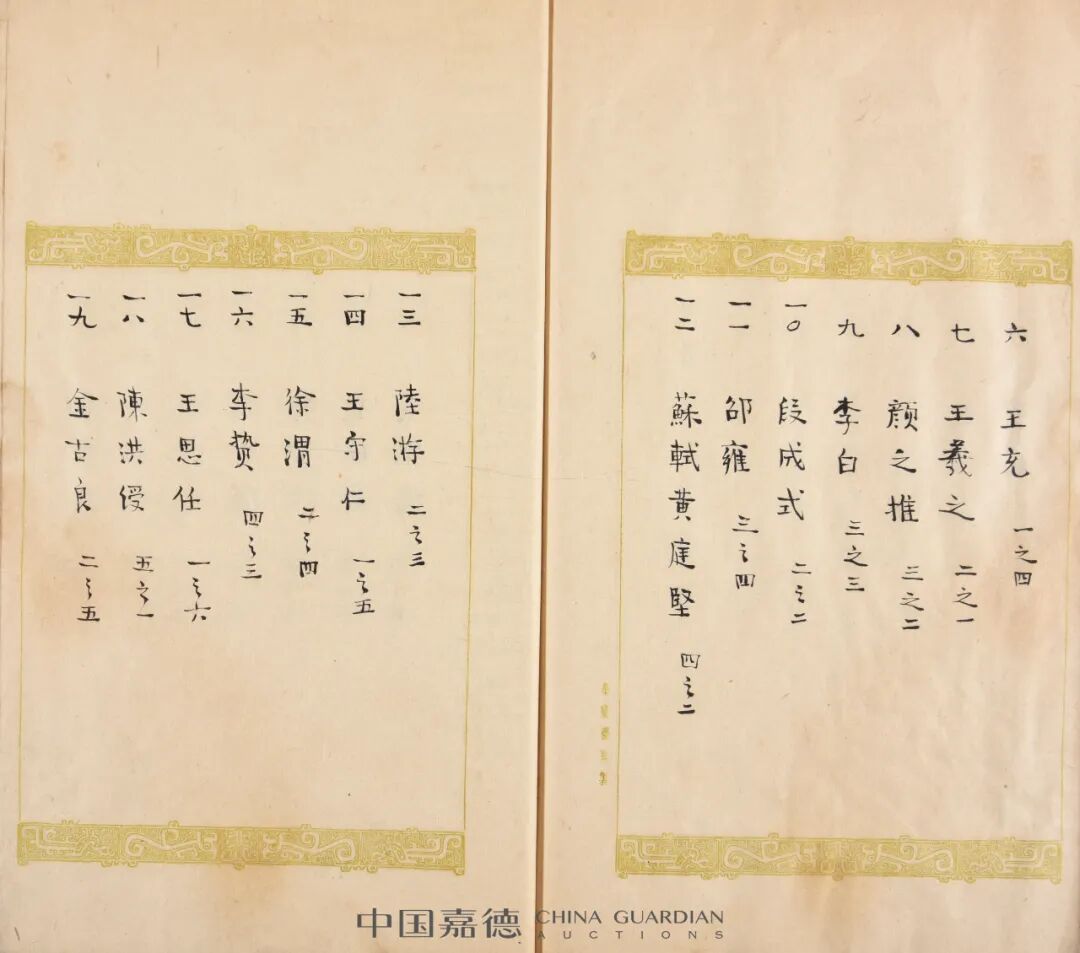 六 王充 一之四
七 王羲之 二之一
八 顏之推 三之二
九 李白 三之三
一〇 段成式 二之二
一一 邵雍 三之四
一二 蘇軾黄庭堅 四之二
一三 陸游 二之三
一四 王守仁 一之五
一五 徐渭 二之四
一六 李贄 四之三
一七 王思任 一之六
一八 陳洪綬 五之一
一九 金古良 二之五
中国嘉德 CHINA GUARDIAN
AUCTIONS